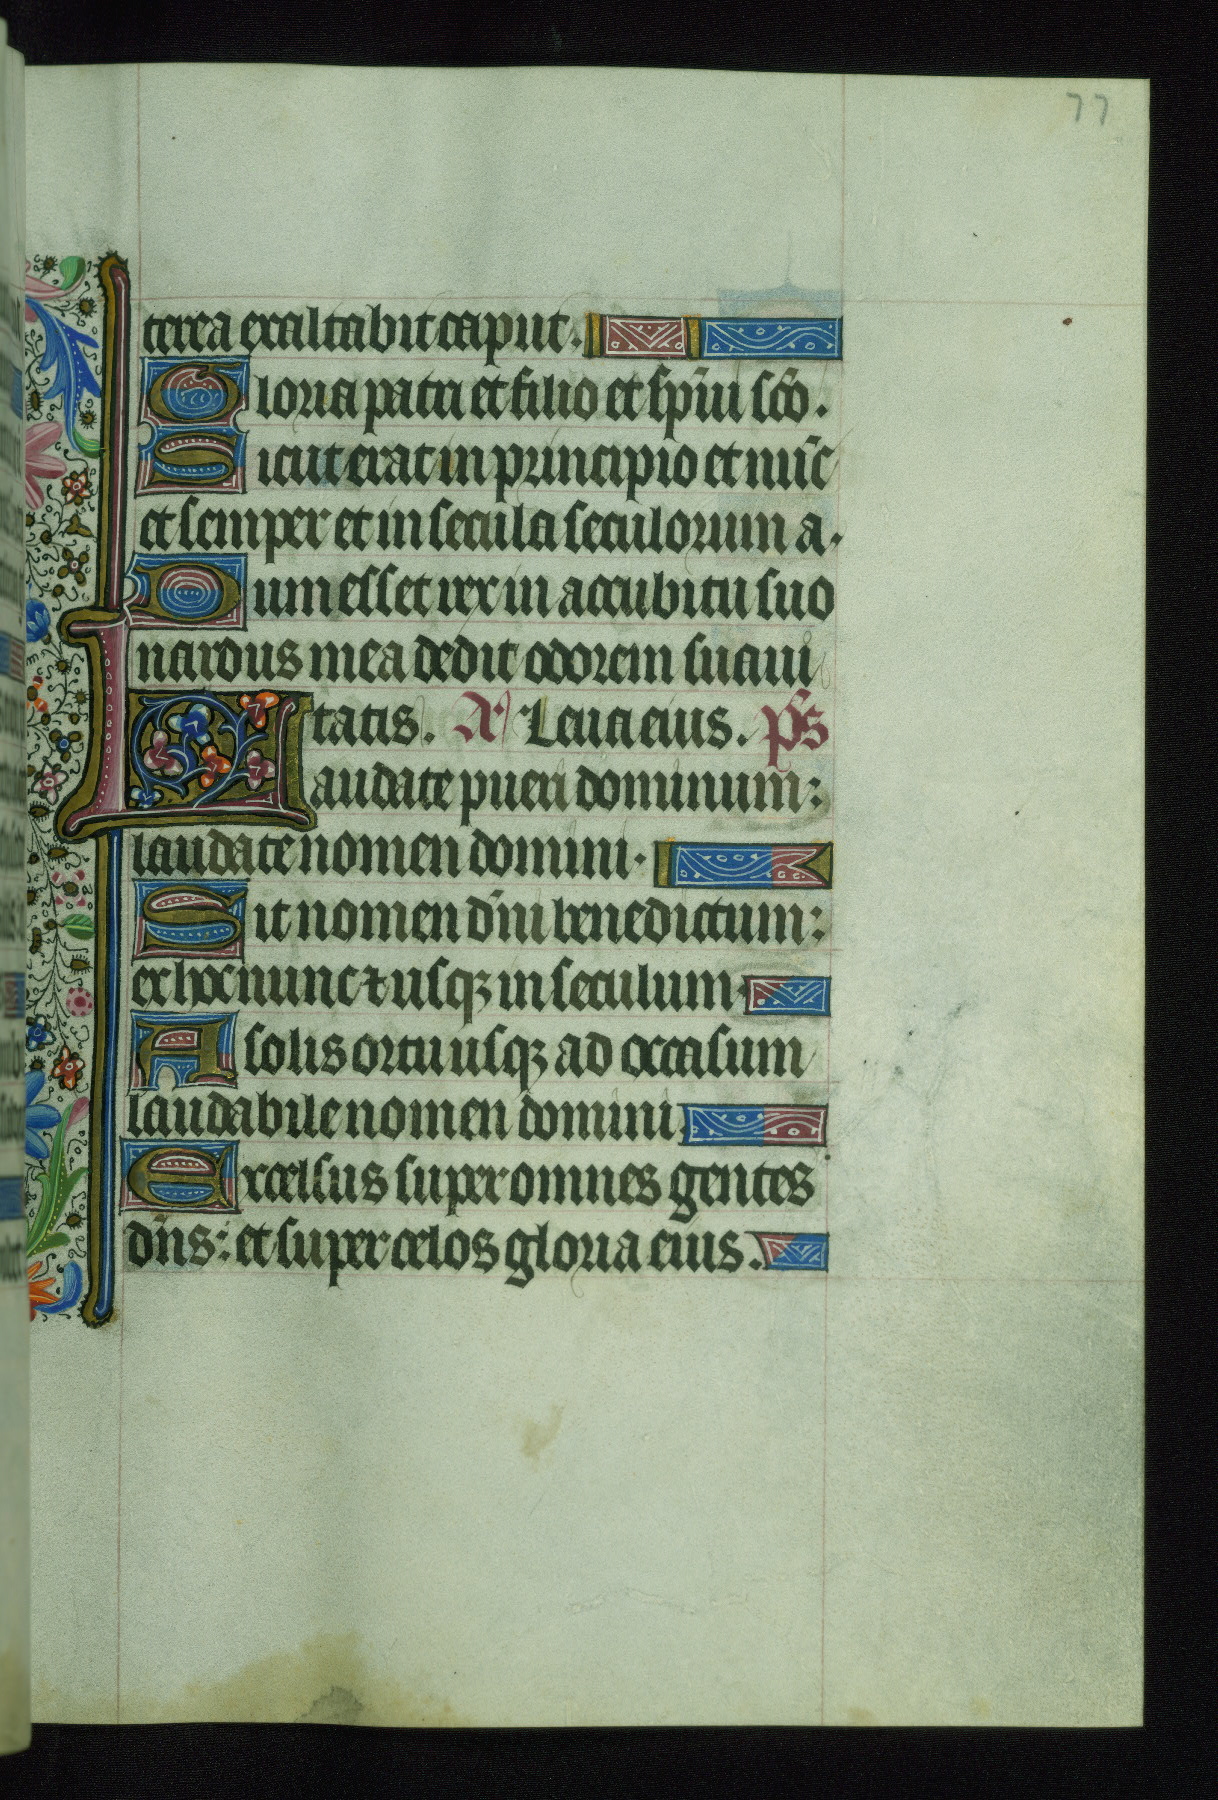 77
terea exaltabit caput.
Gloria patri et filio et sp̄iu sc̄o.
Sicut erat in principio et nūc
et semper et in secula seculorum a.
Dum esset rex in accubitu suo
nardus mea dedit odorem suaui
tatis. A. Leua eius. ps̄
Laudate pueri dominum:
laudate nomen domini.
Sit nomen dn̄i benedictum:
ex hoc nunc ⁊ usqꝫ in seculum
A solis ortu usqꝫ ad occasum
laudabile nomen domini
Excelsus super omnes gentes
dn̄s: et super celos gloria eius.